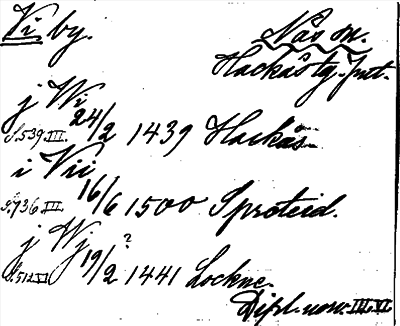 Vi. by. Näs sn.
Hackås tg. Jmt.
j Wi
S.539.III. 24/2 1439 Hackås.
i Vii
S.736.III. 16/6 1500 Sproteid.
j Wj
S.512.VI 19/2 ? 1441 Lockne.
Dipl. norv. III. VI